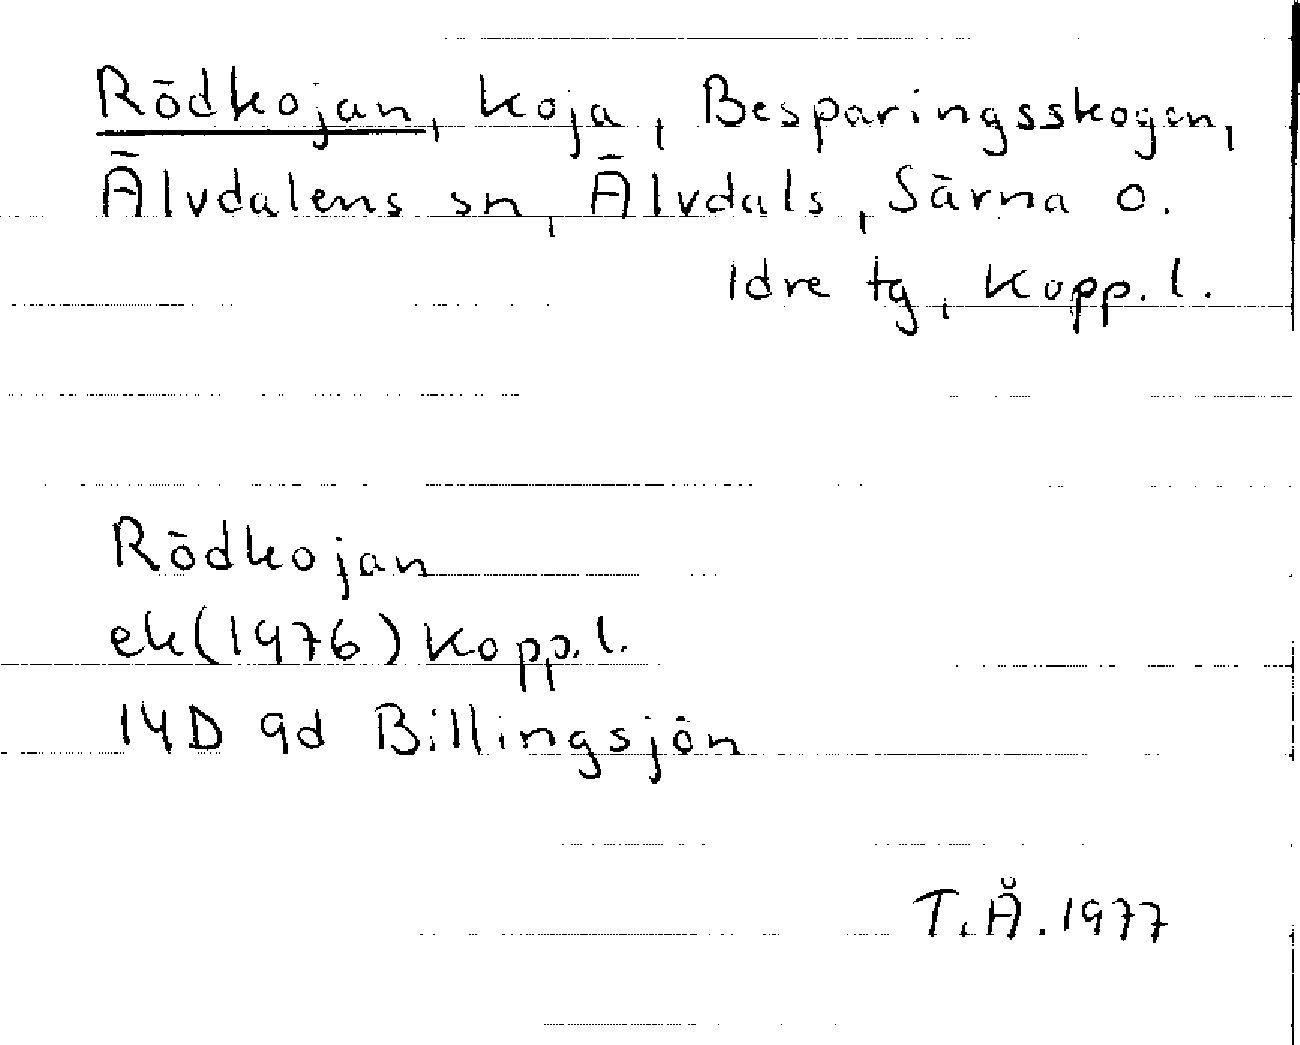 Rödkojan, koja, Besparingsskogen,
Älvdalens sn, Älvdals, Särna o.
Idre tg, Kopp. l.
Rödkojan
ek (1976) Kopp. l.
14D 9d Billingsjön
T.Å. 1977